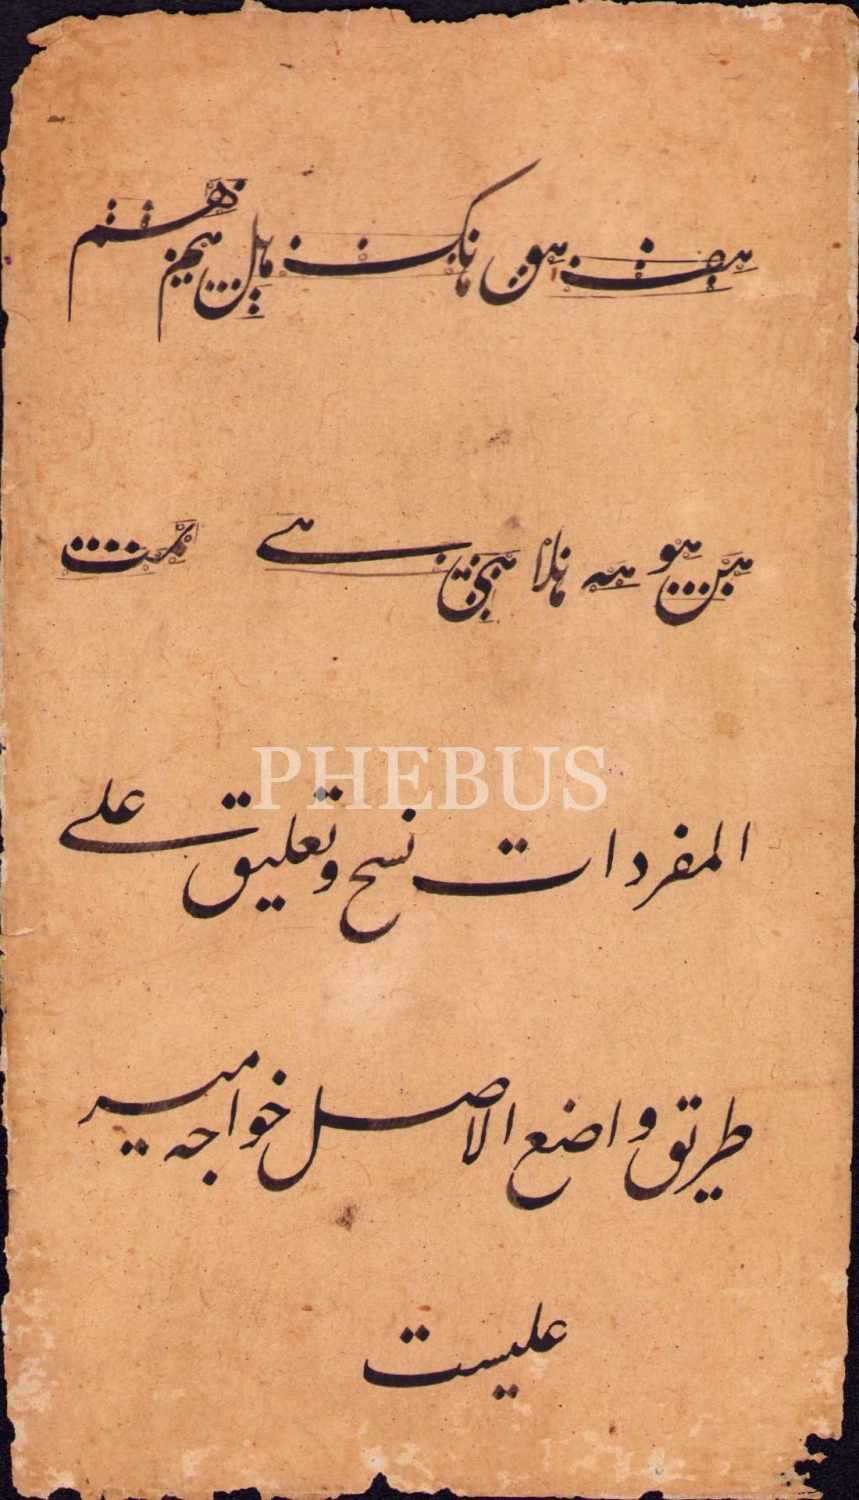 هف هق هک هل هم
هن هو هه هلا هے تمت
PHEBUS
المفردات نسخ وتعلیق علے
طریق واضع الاصل خواجه میر
علیست